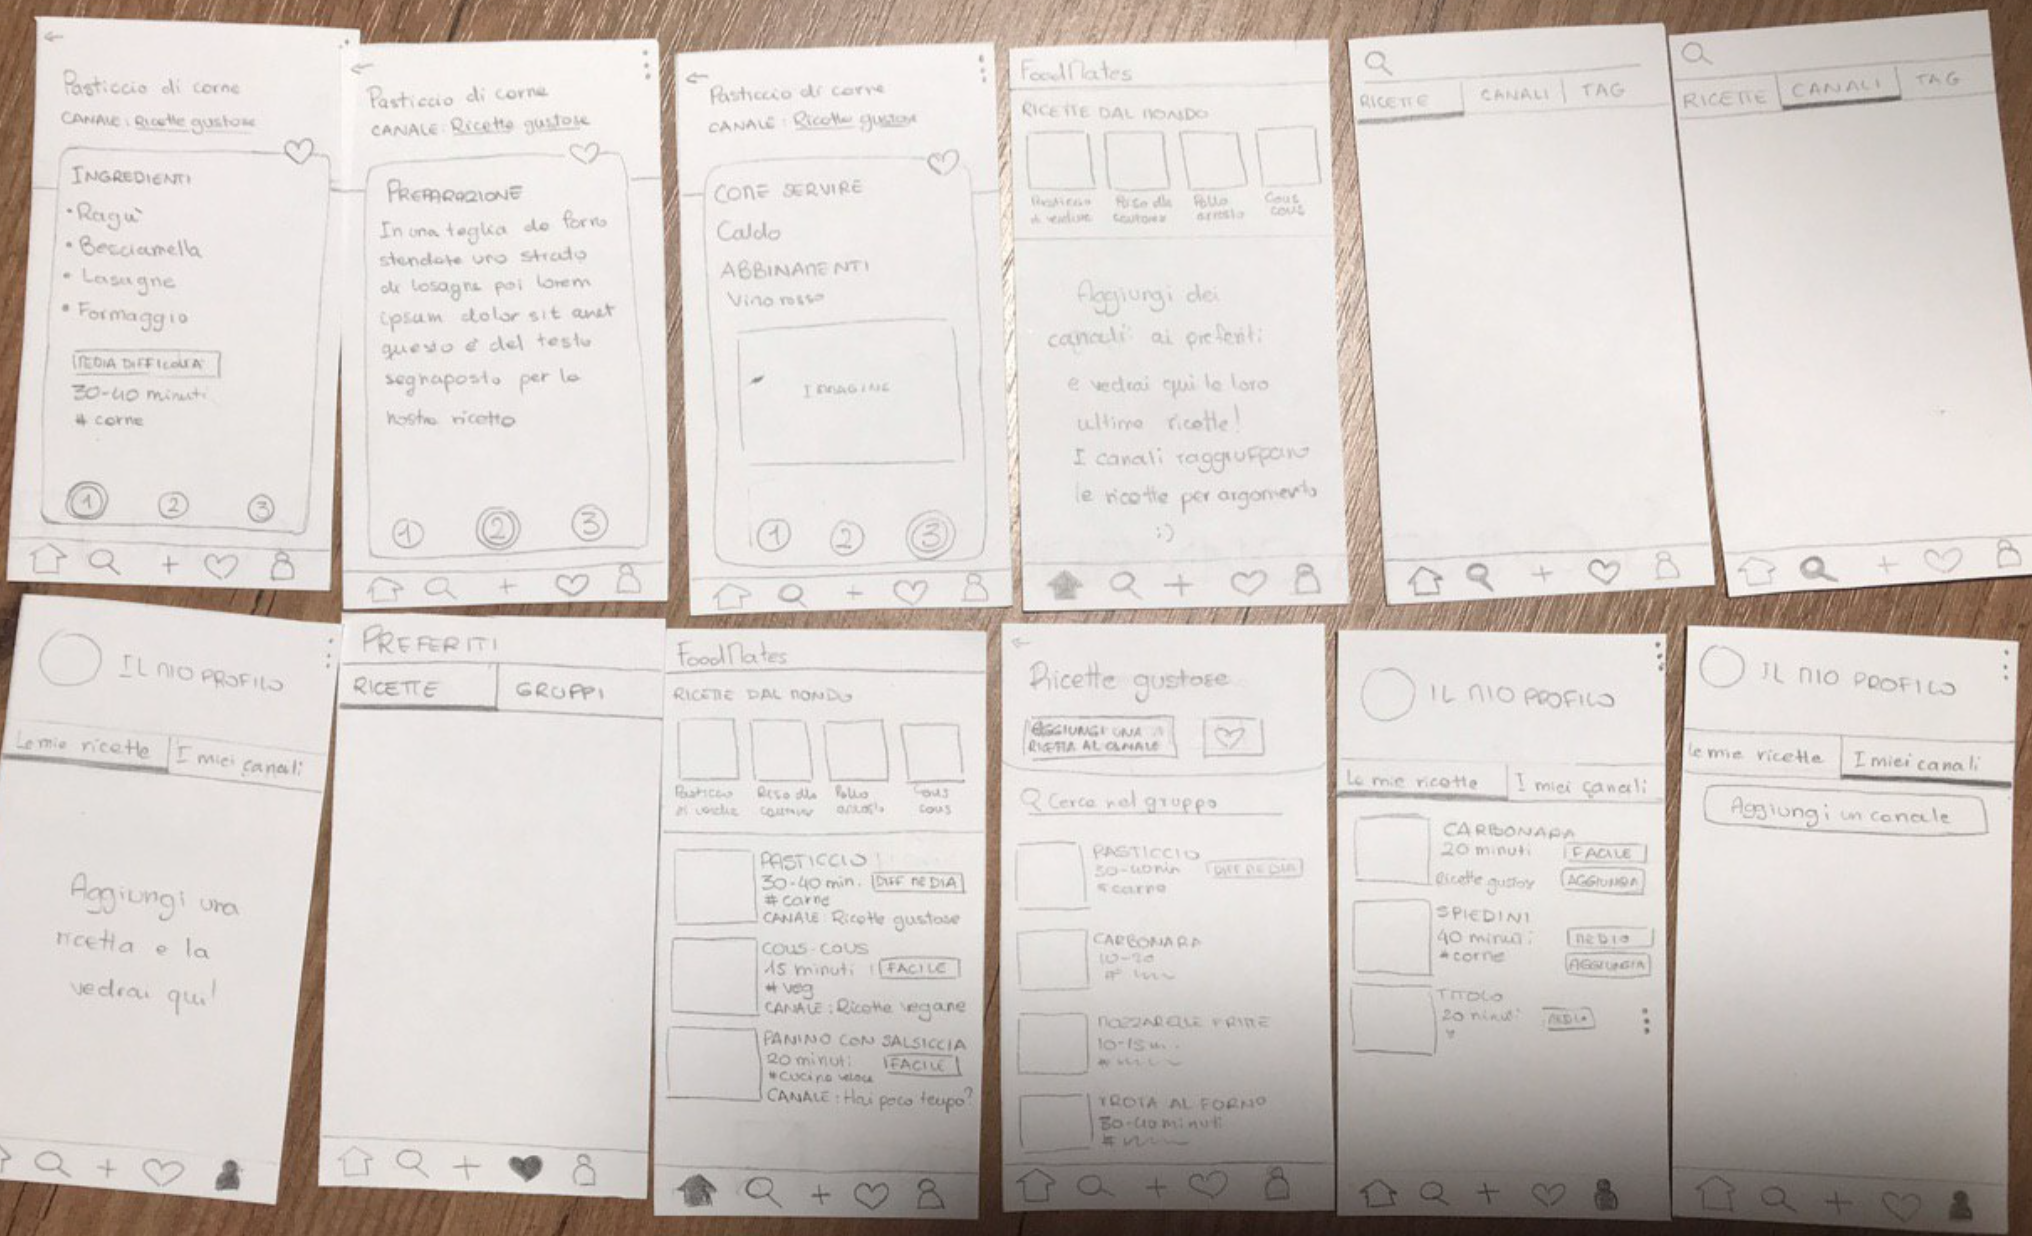 Pasticcio di carne
CANALE: Ricette gustose
INGREDIENTI
• Ragù
• Besciamella
• Lasagne
• Formaggio
MEDIA DIFFICOLTÀ
30-40 minuti
# carne
1 2 3
Pasticcio di carne
CANALE: Ricette gustose
PREPARAZIONE
In una teglia da forno
stendete uno strato
di lasagne poi lorem
ipsum dolor sit amet
questo è del testo
segnaposto per la
nostra ricetta
1 2 3
Pasticcio di carne
CANALE: Ricette gustose
COME SERVIRE
Caldo
ABBINAMENTI
Vino rosso
IMMAGINE
1 2 3
FoodMates
RICETTE DAL MONDO
Pasticcio
di verdure
Riso alla
cantonese
Pollo
arrosto
Cous
cous
Aggiungi dei
canali ai preferiti
e vedrai qui le loro
ultime ricette!
I canali raggruppano
le ricette per argomento
:)
RICETTE CANALI TAG
RICETTE CANALI TAG
IL MIO PROFILO
Le mie ricette I miei canali
Aggiungi una
ricetta e la
vedrai qui!
PREFERITI
RICETTE GRUPPI
FoodMates
RICETTE DAL MONDO
Pasticcio
di verdure
Riso alla
Pollo
arrosto
Cous
cous
PASTICCIO
30-40 min. DIFF MEDIA
# carne
CANALE: Ricette gustose
COUS-COUS
15 minuti FACILE
# veg
CANALE: Ricette vegane
PANINO CON SALSICCIA
20 minuti FACILE
# cucina veloce
CANALE: Hai poco tempo?
Ricette gustose
AGGIUNGI UNA
RICETTA AL CANALE
Cerca nel gruppo
PASTICCIO
30-40 min DIFF MEDIA
# carne
CARBONARA
10-20
#
MOZZARELLE FRITTE
10-15 m.
#
TROTA AL FORNO
30-40 minuti
#
IL MIO PROFILO
Le mie ricette I miei canali
CARBONARA
20 minuti FACILE
Ricette gustose AGGIUNGI
SPIEDINI
40 minuti MEDIO
# carne AGGIUNGI
TITOLO
20 minuti MEDIO
IL MIO PROFILO
Le mie ricette I miei canali
Aggiungi un canale